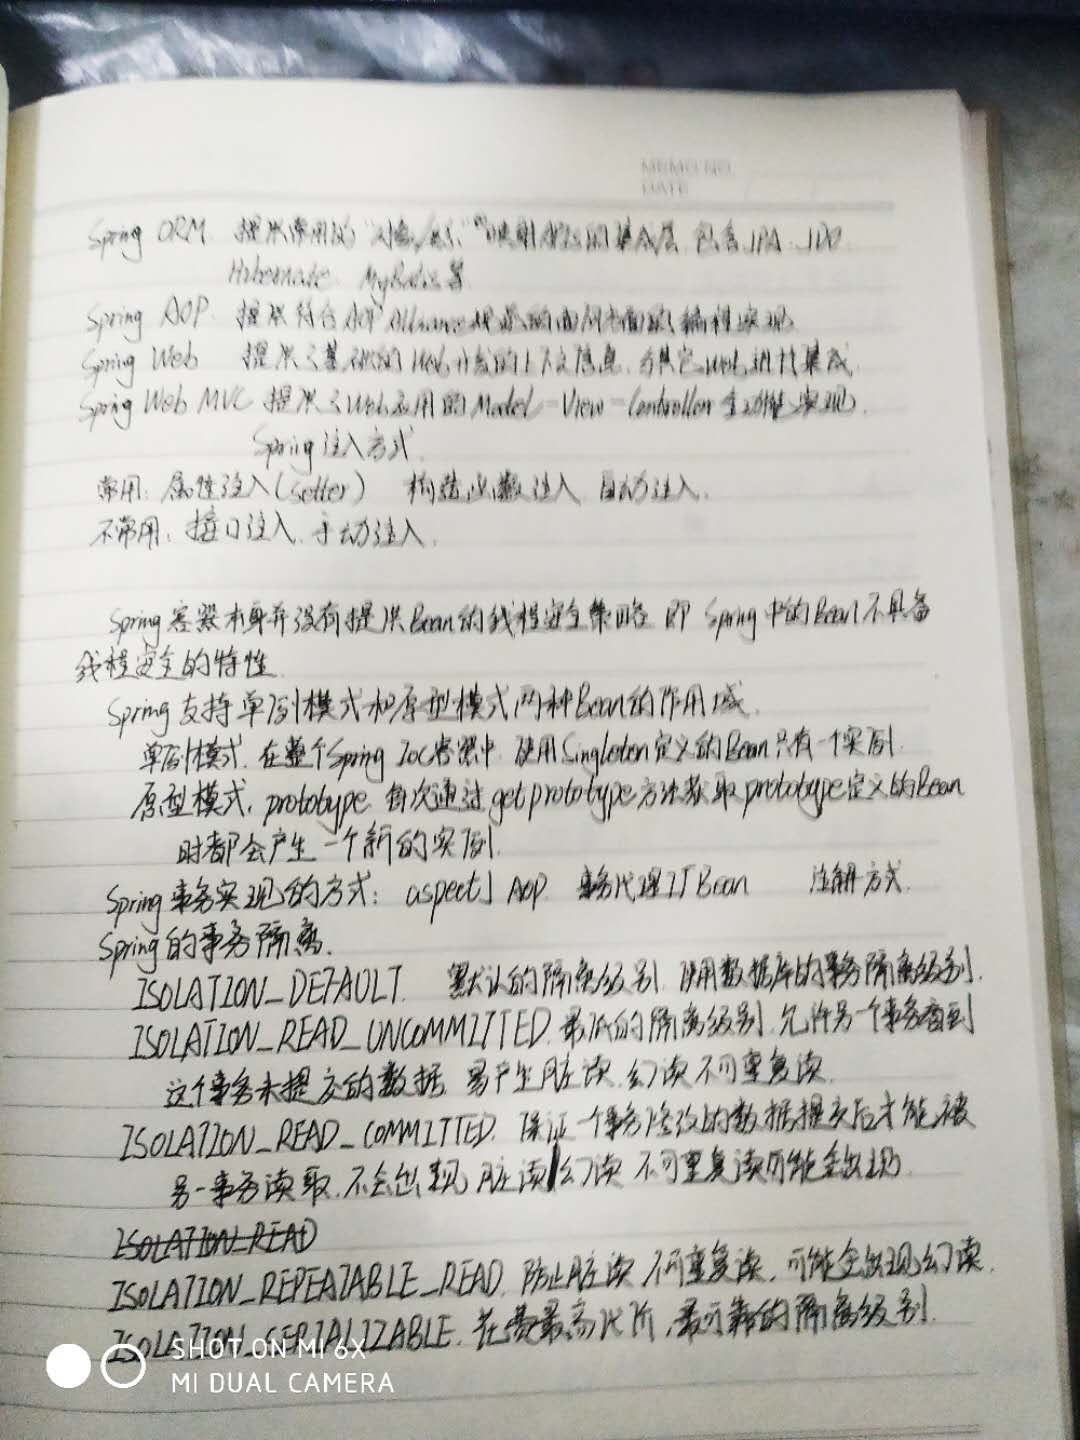 MEMO NO.
DATE
Spring ORM 提供常用的"对象/关系"映射APIs的集成层 包含JPA、JDO
Hibernate MyBatis等
Spring AOP. 提供符合AOP Alliance规范的面向方面的编程实现
Spring Web 提供了基础的Web开发的上下文信息,与其它web进行集成
Spring Web MVC 提供了Web应用的Model-View-Controller全功能实现.
Spring注入方式.
常用: 属性注入(setter) 构造函数注入 自动注入.
不常用: 接口注入、手动注入.
Spring容器本身并没有提供Bean的线程安全策略 即 Spring中的Bean不具备
线程安全的特性.
Spring支持单例模式和原型模式两种Bean的作用域.
单例模式. 在整个Spring IoC容器中. 使用Singleton定义的Bean只有一个实例.
原型模式. prototype 每次通过getprototype方法获取prototype定义的Bean
时都会产生一个新的实例.
Spring事务实现的方式: aspectJ AOP. 事务代理工厂Bean 注解方式.
Spring的事务隔离.
ISOLATION_DEFAULT. 默认的隔离级别. 使用数据库的事务隔离级别.
ISOLATION_READ_UNCOMMITTED. 最低的隔离级别. 允许另一个事务看到
这个事务未提交的数据. 易产生脏读. 幻读 不可重复读.
ISOLATION_READ_COMMITTED. 保证一个事务修改的数据提交后才能被
另一事务读取. 不会出现 脏读 幻读 不可重复读可能会出现.
ISOLATION_READ
ISOLATION_REPEATABLE_READ. 防止脏读 不可重复读. 可能会出现幻读.
ISOLATION_SERIALIZABLE. 花最高代价,最可靠的隔离级别.
SHOT ON MI 6X
MI DUAL CAMERA